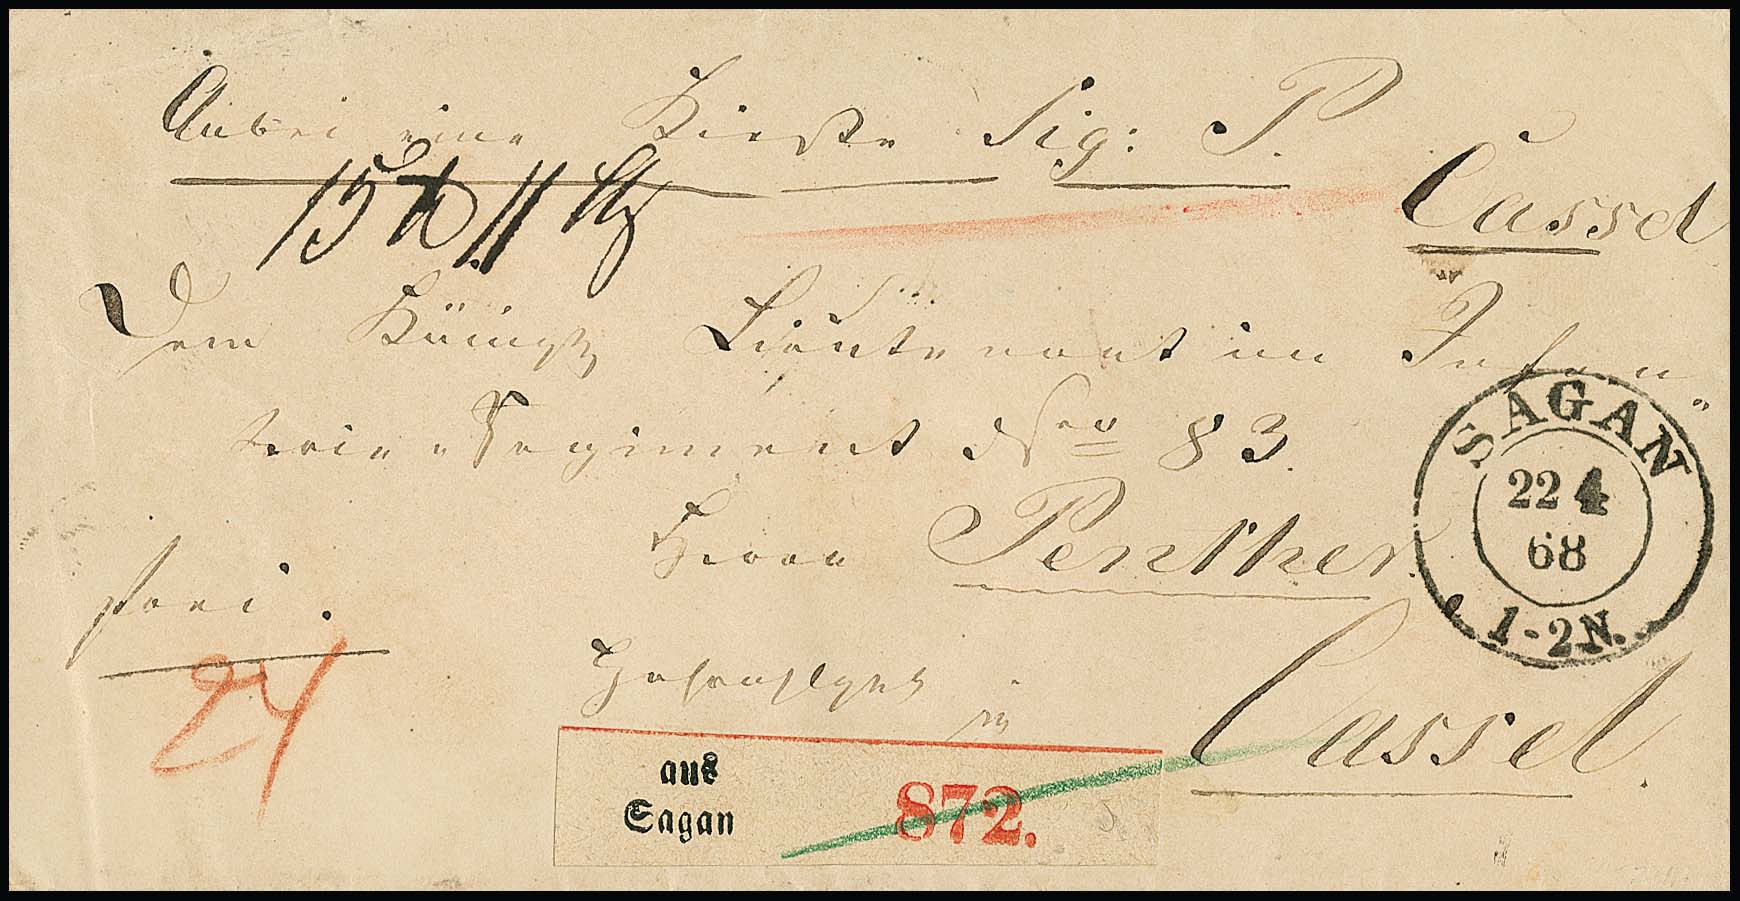 Anbei eine Kiste Sig: P.
Cassel
15 ℔ 11
Dem Königl Lieutenant im Infan
terie-Regiment Nro 83.
Herrn Penther.
frei.
24
in
Cassel.
SAGAN
22 4
68
1-2N.
aus
Sagan
872.